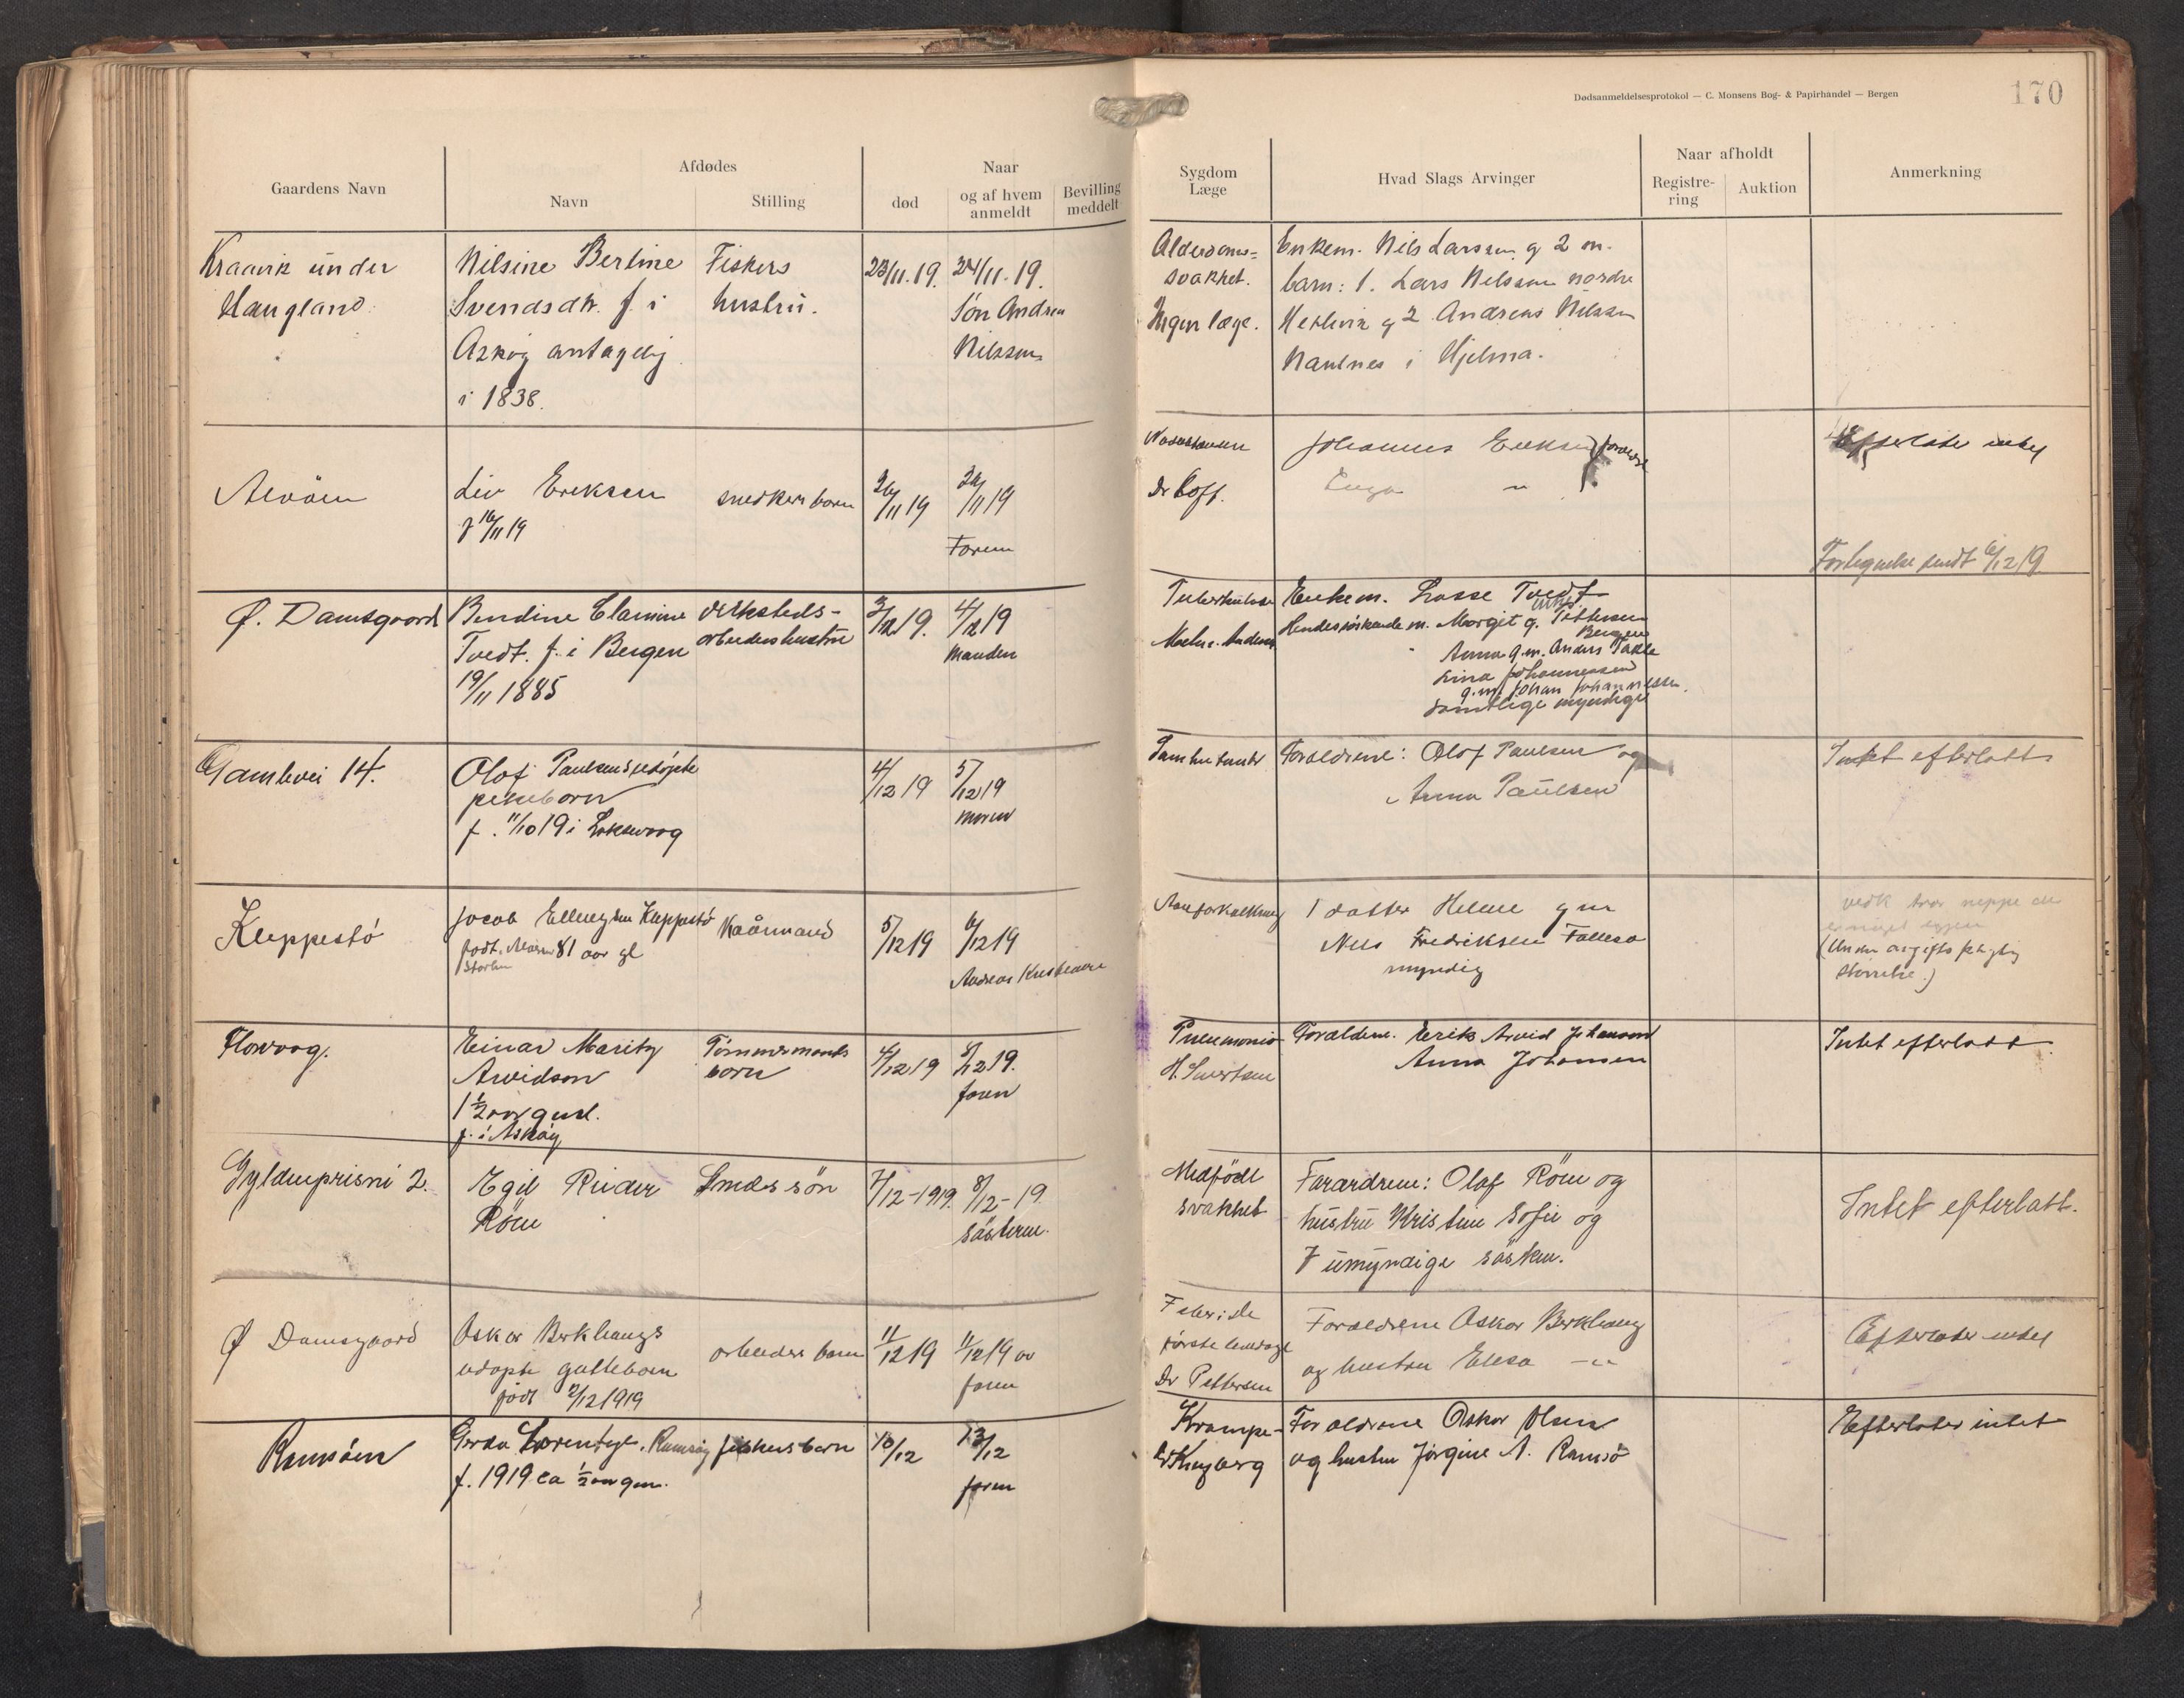 Dødsanmeldelsesprotokol — C. Monsens Bog- & Papirhandel — Bergen
170
Gaardens Navn
Afdødes
Navn
Stilling
død
Naar
og af hvem
anmeldt
Bevilling
meddelt
Sygdom
Læge
Hvad Slags Arvinger
Naar afholdt
Registre-
ring
Auktion
Anmerkning
Kraavik under
Haugland
Nilsine Berline
Svendsdtr. f. i
Askøy antagelig
i 1838.
Fiskers
hustru.
23/11.19.
24/11.19.
Søn Andreas
Nilssen
Alderdoms-
svakhet.
Ingen læge.
Enkem. Nils Larssen og 2 m.
barn: 1. Lars Nilssen nordre
og 2 Andreas Nilssen
i Hjelma.
Alvöen
Liv Eriksen
f 16/11 19
snedkers barn
26/11 19
/11 19
Faren
Dr
Johannes Eriksen foreldre
"
Efterlater intet
Fortegnelse sendt 6/12 19
Ø. Damsgaard
Bendine Elamine
Tvedt. f. i Bergen
19/11 1885
verksteds-
arbeiders hustru
3/12 19.
4/12 19
Manden
Tuberkulose
Enkem. Lasse Tvedt
Hendes søskende m. Margit g. Pettersen
Bergen
Anna g.m. Anders
Lina Johannessen
g.m. Johan Johannessen.
samtlige myndige
Gamlevei 14.
Olaf Paulsens udøpte
pikebarn
f. 11/10 19 i Laksevaag
4/12 19
5/12 19
moren
Foraldrene: Olaf Paulsen og
Anna Paulsen
Intet efterlatt
Kleppestø
Jacob Ellingsen Kleppestø
født 81 aar gl
Kaarmand
5/12 19
6/12 19
Andreas
Aareforkalkning
1 datter Helene g m
Nils Fredriksen
myndig
(Under avgiftspligtig
størrelse.)
Florvaag.
Einar Maritz
Arvidson
1 1/2 aar gml.
f. i Askøy
Tømmermands
barn
4/12 19
8/12 19.
faren
Pneumonia
H. Sivertsen
Foraldrene. Erik Arvid Johanson
Anna Johansen
Intet efterlatt.
Gyldenprisni 2.
Egil Reidar
Röm
Smeds søn
7/12-1919.
8/12-19
søsteren.
Medfødt
svakhet
Forældrene: Olaf Röm og
hustru Kristine Sofie og
7 umyndige søsken.
Intet efterlatt.
Ø Damsgaard
Oskar Berkhaugs
udøpte guttebarn
født 2/12 1919
arbeider barn
11/12 19
11/12 19 av
faren
første levedage
Dr Pettersen
Foraldrene Oskar Berkhaug
og hustru Elesa —"—
Efterlater intet
Ramsöen
Gerda Lorentze. Ramsöy
f. 1919 ca 1/2 aar gm.
fiskers barn
10/12
13/12
faren
Krampe-
Foraldrene Oskar Olsen
og hustru Jörgine A. Ramsö
Efterlater intet